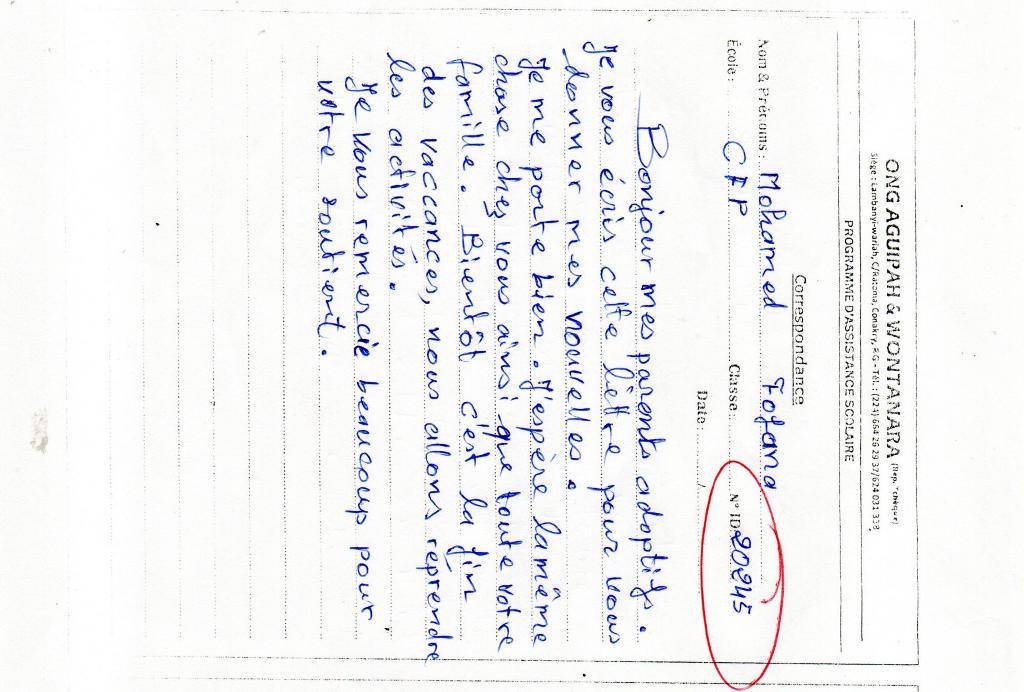 ONG AGUIPAH & WONTANARA (Rep. Tchèque)
Siège : Lambanyi-wariah, C/Ratoma, Conakry, RG - Tél. : (224) 664 26 29 37/624 031 333
PROGRAMME D'ASSISTANCE SCOLAIRE
Correspondance
Nom & Prénoms : Mohamed Fofana
École : C F P Classe : N° ID 20245
Date :
Bonjour mes parents adoptifs.
Je vous écris cette lettre pour vous
donner mes nouvelles.
Je me porte bien. J'espère la même
chose chez vous ainsi que toute votre
famille. Bientôt c'est la fin
des vaccances, nous allons réprendre
les activités.
Je vous remercie beaucoup pour
votre soutient.